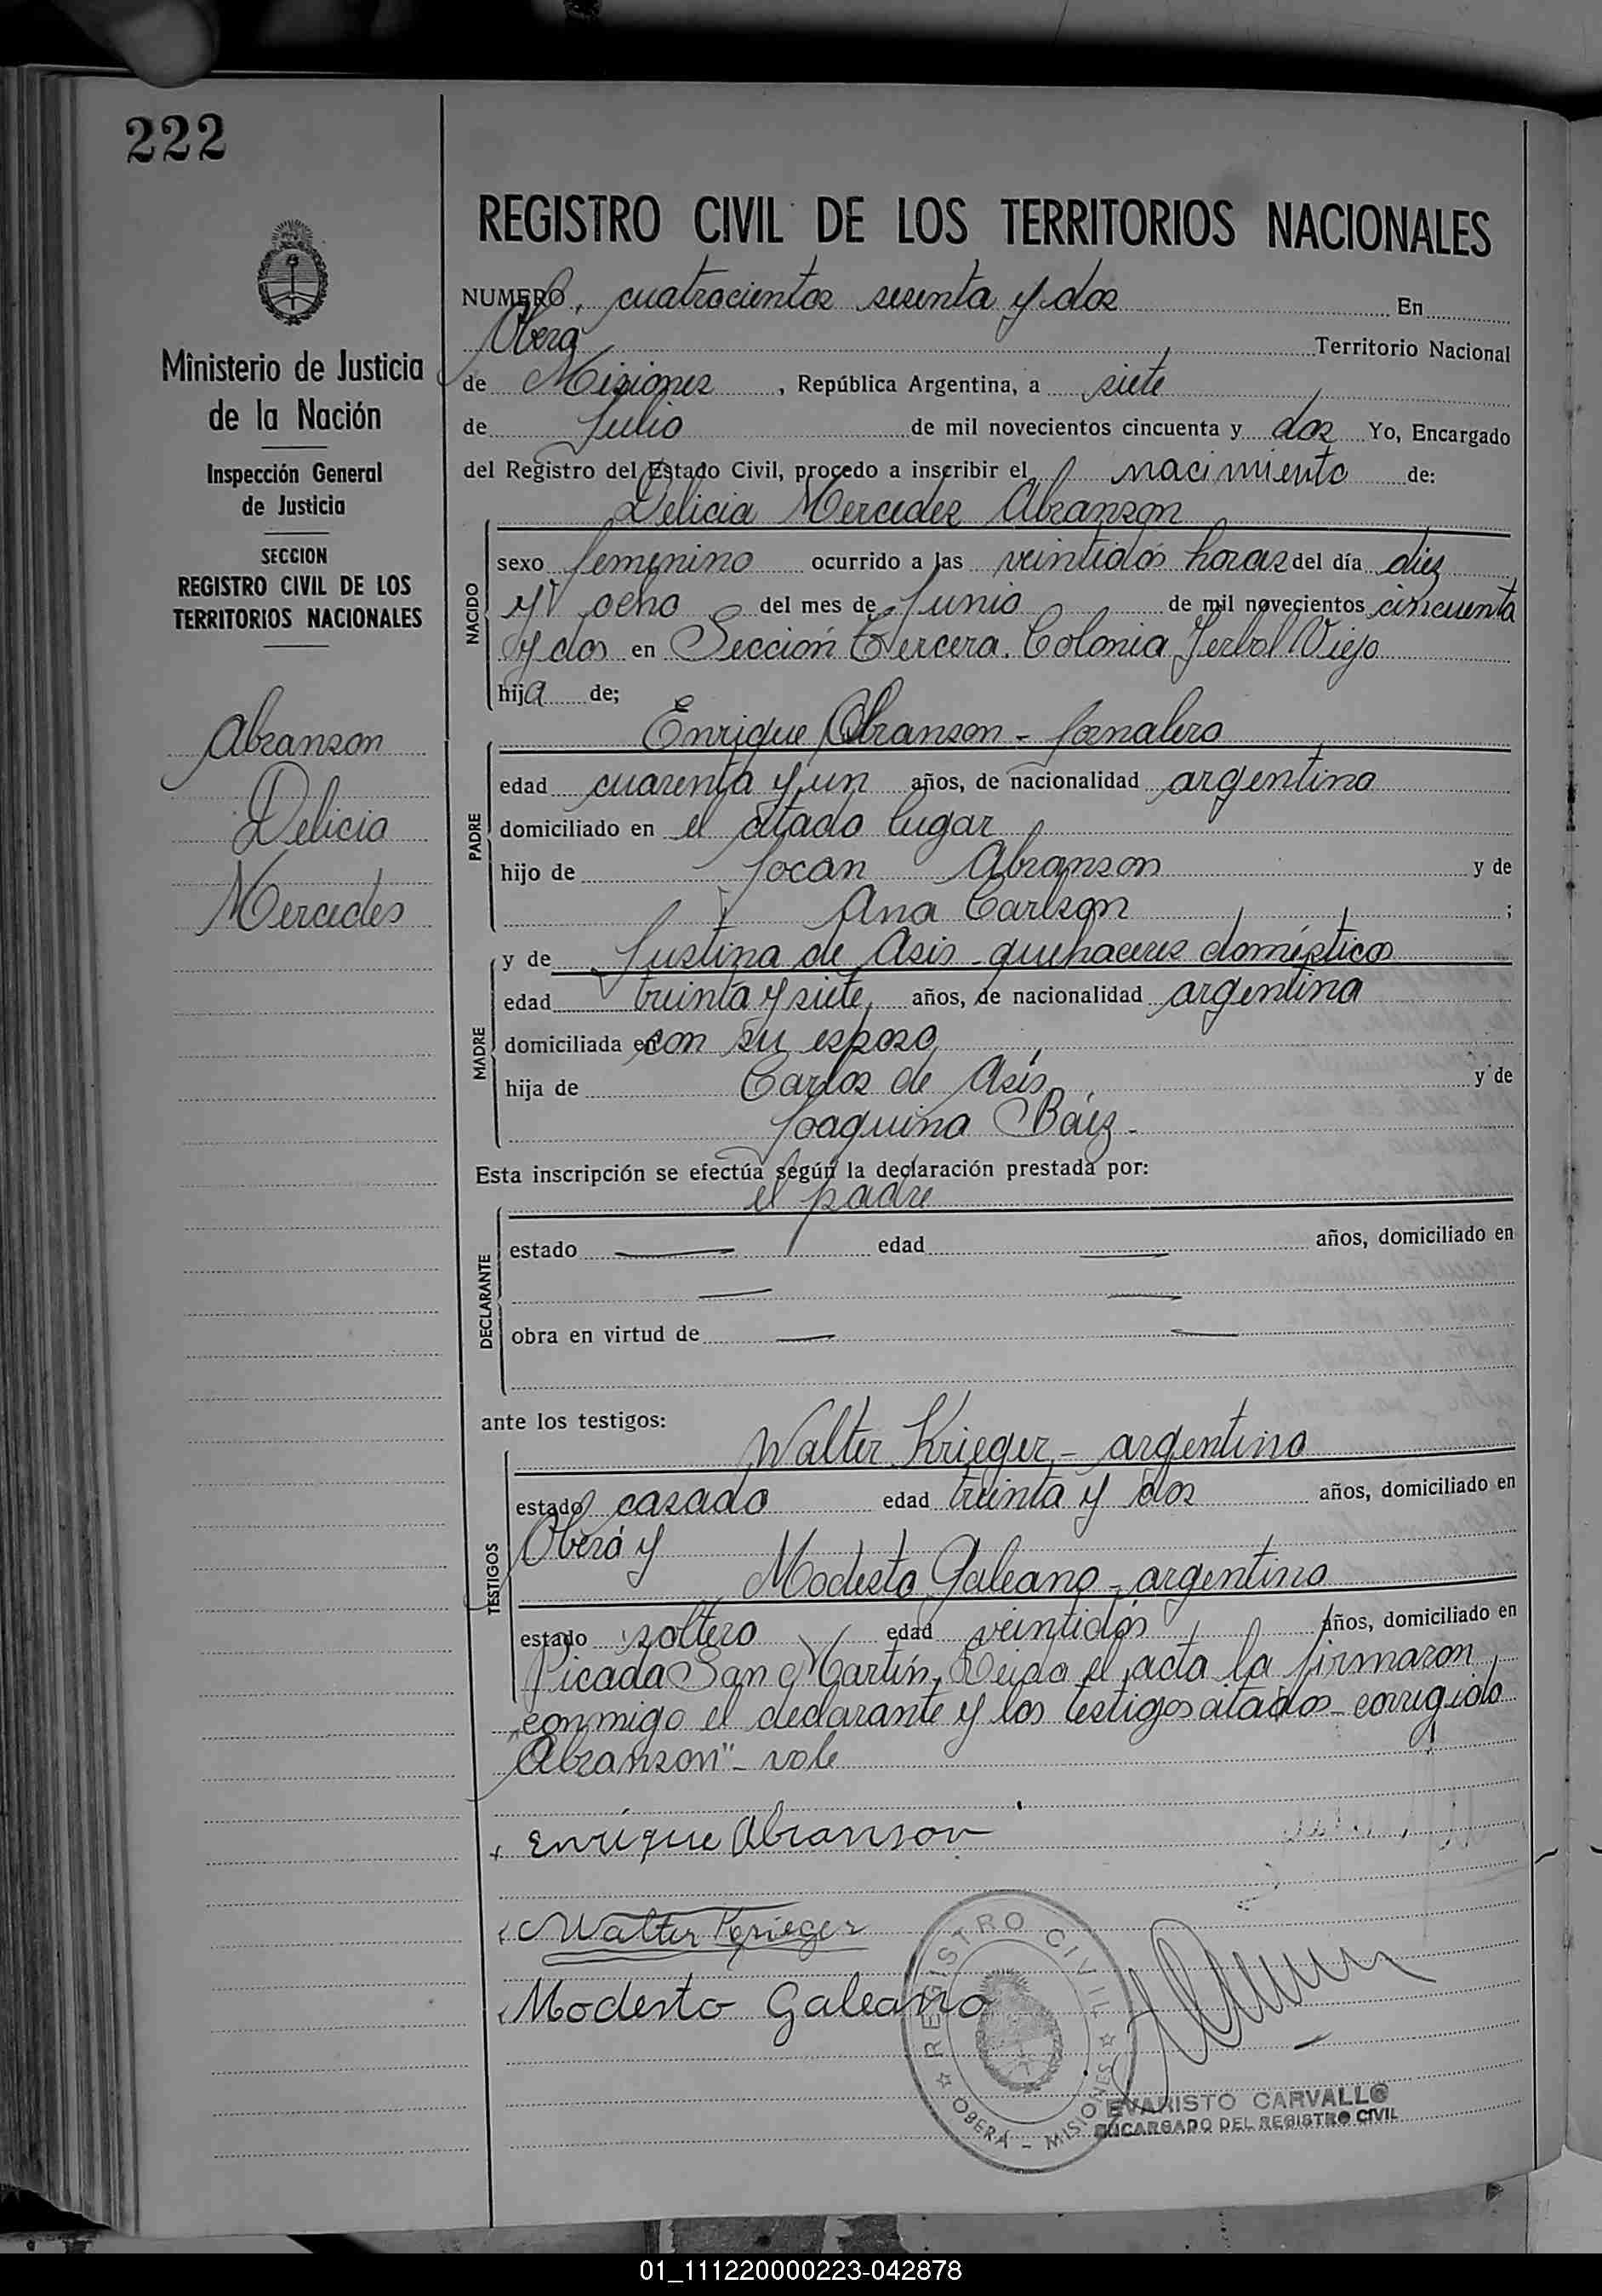 222
Ministerio de Justicia
de la Nación
Inspección General
de Justicia
SECCION
REGISTRO CIVIL DE LOS
TERRITORIOS NACIONALES
Abranson
Delicia
Mercedes
REGISTRO CIVIL DE LOS TERRITORIOS NACIONALES
NUMERO cuatrocientos sesenta y dos En
Oberá Territorio Nacional
de Misiones, República Argentina, a siete
de Julio de mil novecientos cincuenta y dos Yo, Encargado
del Registro del Estado Civil, procedo a inscribir el nacimiento de:
Delicia Mercedes Abranson
NACIDO
sexo femenino ocurrido a las veintidós horas del día diez
y ocho del mes de Junio de mil novecientos cincuenta
y dos en Sección Tercera. Colonia Yerbal Viejo
hija de;
Enrique Abranson - Jornalero
PADRE
edad cuarenta y un años, de nacionalidad argentina
domiciliado en el citado lugar
hijo de Jocan Abranson y de
Ana Carlson ;
y de Justina de Asis - quehaceres doméstico
MADRE
edad treinta y siete, años, de nacionalidad argentina
domiciliada en con su esposo
hija de Carlos de Asís y de
Joaquina Báez -
Esta inscripción se efectúa según la declaración prestada por:
el padre
DECLARANTE
estado edad años, domiciliado en
obra en virtud de
ante los testigos:
Walter Krieger - argentino
TESTIGOS
estado casado edad treinta y dos años, domiciliado en
Oberá y
Modesto Galeano - argentino
estado soltero edad veintidós años, domiciliado en
Picada San Martín. Leida el acta la firmaron
conmigo el declarante y los testigos citados - corregido
"Abranson" - vale
Enrique Abranson
Walter Krieger
Modesto Galeano
REGISTRO CIVIL
OBERÁ - MISIONES
EVARISTO CARVALLO
ENCARGADO DEL REGISTRO CIVIL
01_111220000223-042878